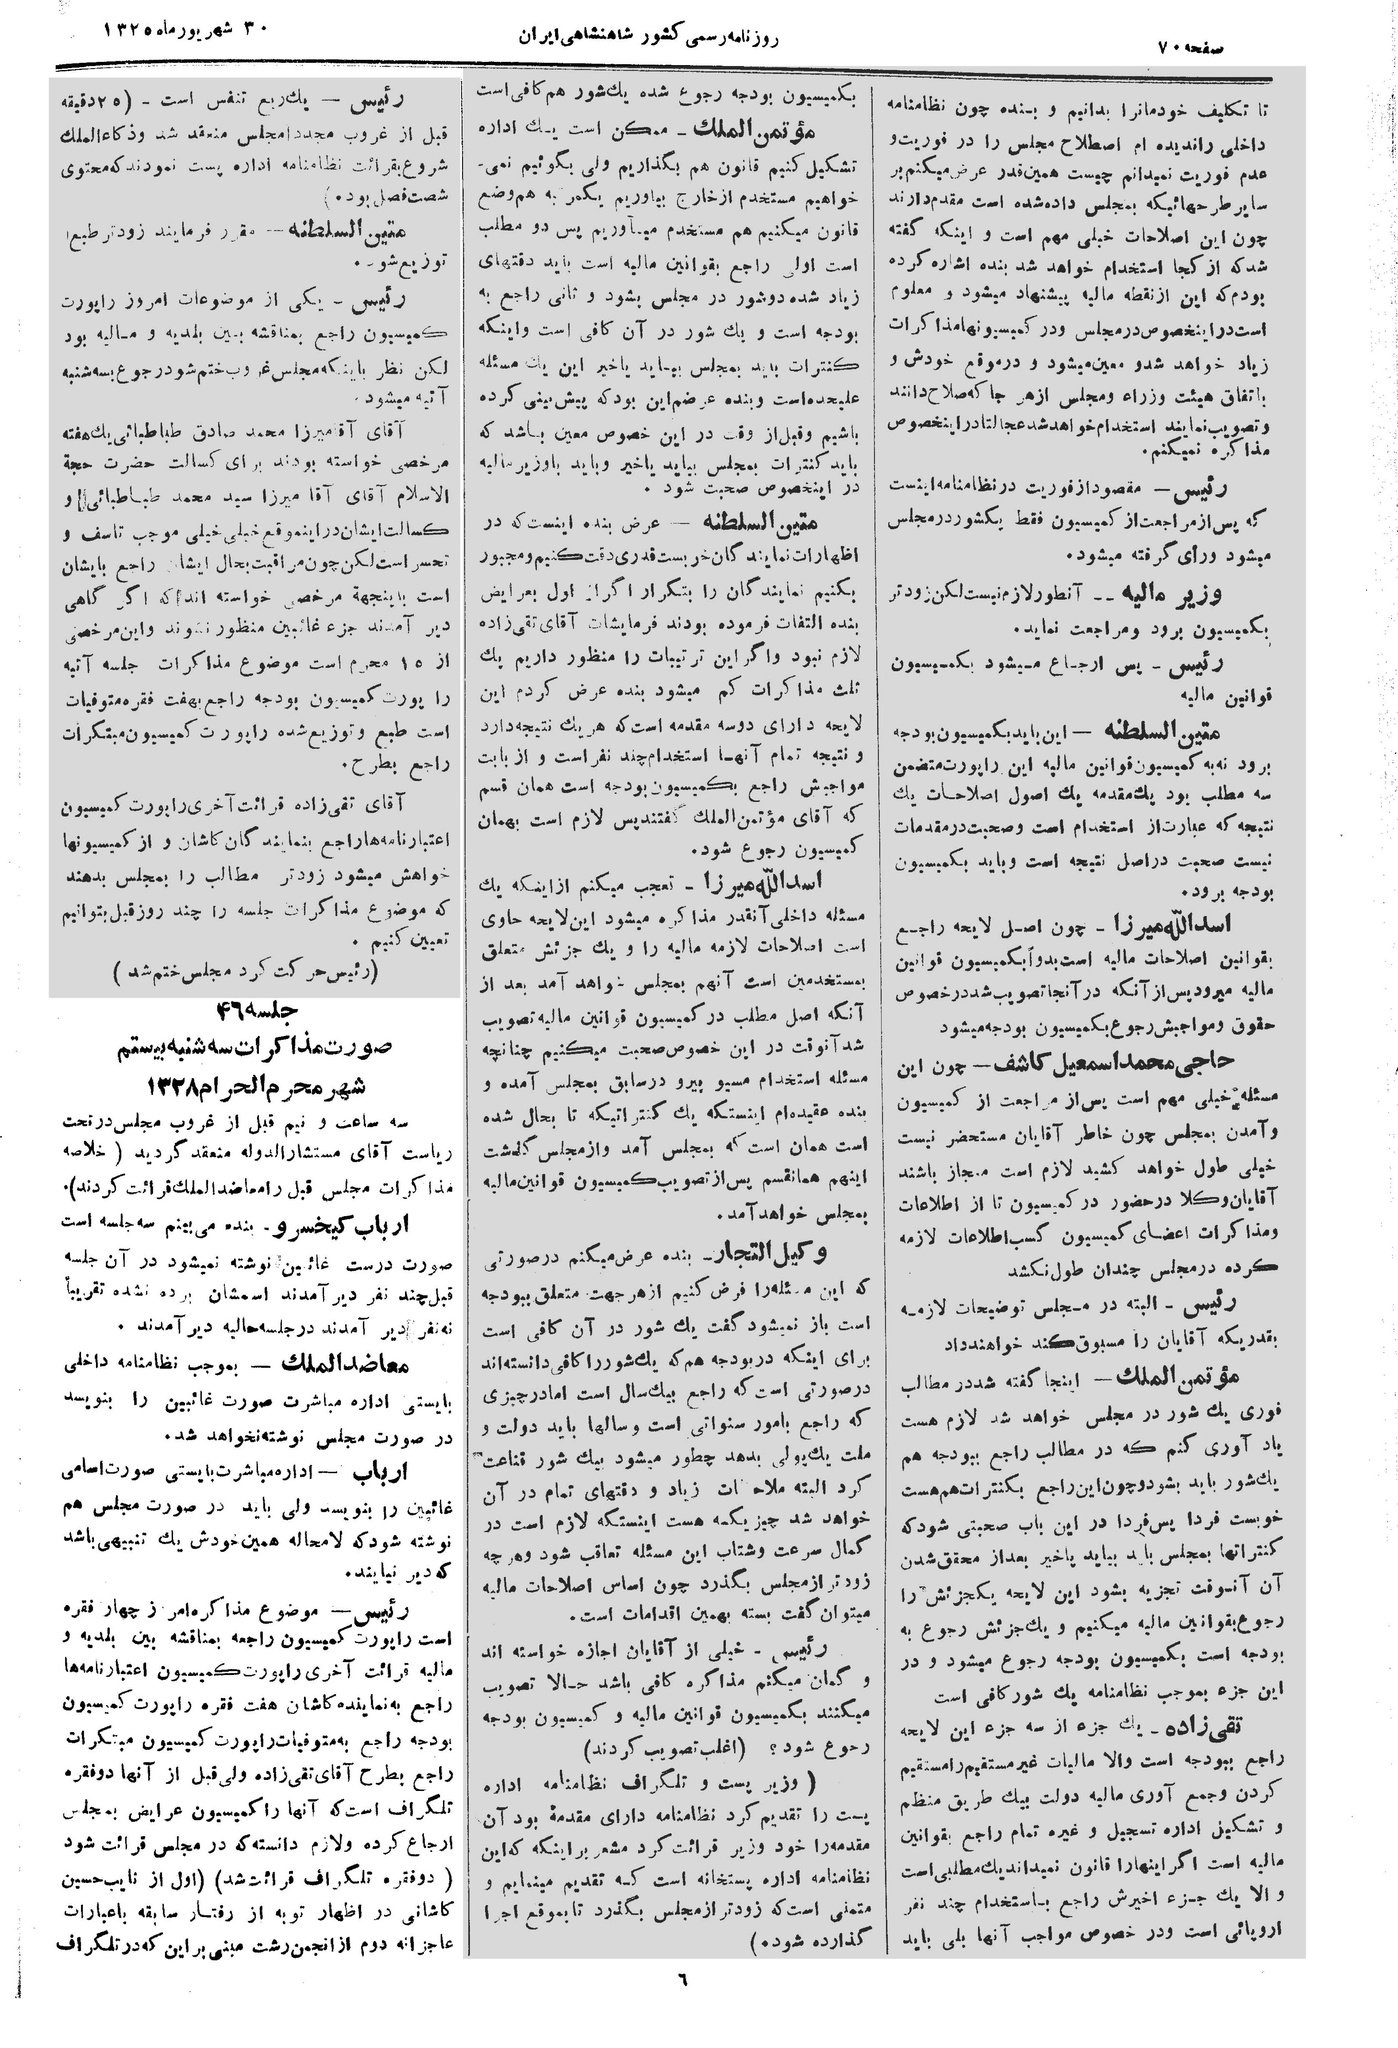 صفحه ۷۰
روزنامه رسمی کشور شاهنشاهی ایران
۳۰ شهریور ماه ۱۳۲۵
تا تکلیف خودمانرا بدانیم و بنده چون نظامنامه
داخلی راندیده ام اصطلاح مجلس را در فوریت و
عدم فوریت نمیدانم چیست همین قدر عرض میکنم بر
سایر طرحهائیکه بمجلس داده شده است مقدم دارند
چون این اصلاحات خیلی مهم است و اینکه گفته
شد که از کجا استخدام خواهد شد بنده اشاره کرده
بودم که این از نقطه مالیه پیشنهاد میشود و معلوم
است در اینخصوص در مجلس ودر کمیسیونها مذاکرات
زیاد خواهد شد و معین میشود و در موقع خودش و
باتفاق هیئت وزراء ومجلس از هر جا که صلاح دانند
و تصویب نمایند استخدام خواهد شد عجالتا در اینخصوص
مذاکره نمیکنم.
رئیس — مقصود از فوریت در نظامنامه اینست
که پس از مراجعت از کمیسیون فقط یکشور در مجلس
میشود ورأی گرفته میشود.
وزیر مالیه -- آنطور لازم نیست لکن زودتر
بکمیسیون برود ومراجعت نماید.
رئیس - پس ارجاع میشود بکمیسیون
قوانین مالیه
متین السلطنه — این باید بکمیسیون بودجه
برود نه به کمیسیون قوانین مالیه این راپورت متضمن
سه مطلب بود یک مقدمه یک اصول اصلاحات یک
نتیجه که عبارت از استخدام است وصحبت در مقدمات
نیست صحبت در اصل نتیجه است وباید بکمیسیون
بودجه برود.
اسدالله میرزا - چون اصل لایحه راجع
بقوانین اصلاحات مالیه است بدواً بکمیسیون قوانین
مالیه میرود پس از آنکه در آنجا تصویب شد در خصوص
حقوق ومواجبش رجوع بکمیسیون بودجه میشود
حاجی محمد اسمعیل کاشف — چون این
مسئله خیلی مهم است پس از مراجعت از کمیسیون
وآمدن بمجلس چون خاطر آقایان مستحضر نیست
خیلی طول خواهد کشید لازم است مجاز باشند
آقایان وکلا در حضور در کمیسیون تا از اطلاعات
ومذاکرات اعضای کمیسیون کسب اطلاعات لازمه
کرده در مجلس چندان طول نکشد
رئیس - البته در مجلس توضیحات لازمه
بقدریکه آقایان را مسبوق کند خواهند داد
مؤتمن الملک — اینجا گفته شد در مطالب
فوری یک شور در مجلس خواهد شد لازم هست
یاد آوری کنم که در مطالب راجع ببودجه هم
یک شور باید بشود و چون این راجع بکنترات هم هست
خوبست فردا پس فردا در این باب صحبتی شود که
کنتراتها بمجلس باید بیاید یاخیر بعد از محقق شدن
آن آنوقت تجزیه بشود این لایحه یکجزئش را
رجوع بقوانین مالیه میکنیم و یک جزئش رجوع به
بودجه است بکمیسیون بودجه رجوع میشود و در
این جزء بموجب نظامنامه یک شور کافی است
تقی زاده - یک جزء از سه جزء این لایحه
راجع ببودجه است والا مالیات غیر مستقیم را مستقیم
کردن وجمع آوری مالیه دولت بیک طریق منظم
و تشکیل اداره تسجیل و غیره تمام راجع بقوانین
مالیه است اگر اینهارا قانون نمیدانید یک مطلبی است
و الا یک جزء اخیرش راجع باستخدام چند نفر
اروپائی است ودر خصوص مواجب آنها بلی باید
بکمیسیون بودجه رجوع شده یک شور هم کافی است
مؤتمن الملک - ممکن است یک اداره
تشکیل کنیم قانون هم بگذاریم ولی بگوئیم نمی-
خواهیم مستخدم از خارج بیاوریم یکمرتبه هم وضع
قانون میکنیم هم مستخدم میآوریم پس دو مطلب
است اولی راجع بقوانین مالیه است باید دقتهای
زیاد شده دوشور در مجلس بشود و ثانی راجع به
بودجه است و یک شور در آن کافی است واینکه
کنترات باید بمجلس بیاید یاخیر این یک مسئله
علیحده است وبنده عرضم این بود که پیش بینی کرده
باشیم وقبل از وقت در این خصوص معین باشد که
باید کنترات بمجلس بیاید یاخیر وباید باوزیر مالیه
در اینخصوص صحبت شود.
متین السلطنه — عرض بنده اینست که در
اظهارات نمایندگان خوبست قدری دقت کنیم ومجبور
بکنیم نمایندگان را بتکرار اگر از اول بعرایض
بنده التفات فرموده بودند فرمایشات آقای تقی زاده
لازم نبود واگر این ترتیبات را منظور داریم یک
ثلث مذاکرات کم میشود بنده عرض کردم این
لایحه دارای دوسه مقدمه است که هر یک نتیجه دارد
و نتیجه تمام آنها استخدام چند نفر است و از بابت
مواجبش راجع بکمیسیون بودجه است همان قسم
که آقای مؤتمن الملک گفتند پس لازم است بهمان
کمیسیون رجوع شود.
اسدالله میرزا - تعجب میکنم از اینکه یک
مسئله داخلی آنقدر مذاکره میشود این لایحه حاوی
است اصلاحات لازمه مالیه را و یک جزئش متعلق
بمستخدمین است آنهم بمجلس خواهد آمد بعد از
آنکه اصل مطلب در کمیسیون قوانین مالیه تصویب
شد آنوقت در این خصوص صحبت میکنیم چنانچه
مسئله استخدام مسیو بیزو در سابق بمجلس آمده و
بنده عقیده ام اینستکه یک کنتراتیکه تا بحال شده
است همان است که بمجلس آمد واز مجلس گذشت
اینهم همانقسم پس از تصویب کمیسیون قوانین مالیه
بمجلس خواهد آمد.
وکیل التجار - بنده عرض میکنم در صورتی
که این مسئله را فرض کنیم از هر جهت متعلق ببودجه
است باز نمیشود گفت یک شور در آن کافی است
برای اینکه در بودجه هم که یک شور را کافی دانسته اند
در صورتی است که راجع بیک سال است اما در چیزی
که راجع بامور سنواتی است وسالها باید دولت و
ملت یک پولی بدهد چطور میشود بیک شور قناعت
کرد البته ملاحظات زیاد و دقتهای تمام در آن
خواهد شد چیزیکه هست اینستکه لازم است در
کمال سرعت وشتاب این مسئله تعاقب شود وهر چه
زودتر از مجلس بگذرد چون اساس اصلاحات مالیه
میتوان گفت بسته بهمین اقدامات است.
رئیس - خیلی از آقایان اجازه خواسته اند
و گمان میکنم مذاکره کافی باشد حالا تصویب
میکنند بکمیسیون قوانین مالیه و کمیسیون بودجه
رجوع شود؟ (اغلب تصویب کردند)
( وزیر پست و تلگراف نظامنامه اداره
پست را تقدیم کرد نظامنامه دارای مقدمهٔ بود آن
مقدمه را خود وزیر قرائت کرد مشعر بر اینکه که این
نظامنامه اداره پستخانه است که تقدیم مینمایم و
متمنی است که زودتر از مجلس بگذرد تا بموقع اجرا
گذارده شود.)
رئیس — یک ربع تنفس است - (۲۵ دقیقه
قبل از غروب مجددا مجلس منعقد شد وذکاءالملک
شروع بقرائت نظامنامه اداره پست نمودند که محتوی
شصت فصل بود.)
متین السلطنه — مقرر فرمایند زودتر طبع و
توزیع شود.
رئیس - یکی از موضوعات امروز راپورت
کمیسیون راجع بمناقشه بین بلدیه و مالیه بود
لکن نظر باینکه مجلس غروب ختم شود رجوع بسه شنبه
آتیه میشود.
آقای آقامیرزا محمد صادق طباطبائی یک هفته
مرخصی خواسته بودند برای کسالت حضرت حجة
الاسلام آقای آقا میرزا سید محمد طباطبائی و
کسالت ایشان در اینموقع خیلی خیلی موجب تاسف و
تحسر است لکن چون مراقبت بحال ایشان راجع بایشان
است باینجهة مرخصی خواسته اند که اگر گاهی
دیر آمدند جزء غائبین منظور نشوند واین مرخصی
از ۱۵ محرم است موضوع مذاکرات جلسه آتیه
را پورت کمیسیون بودجه راجع بهفت فقره متوفیات
است طبع و توزیع شده راپورت کمیسیون مبتکرات
راجع بطرح.
آقای تقی زاده قرائت آخری راپورت کمیسیون
اعتبارنامه ها راجع بنمایندگان کاشان و از کمیسیونها
خواهش میشود زودتر مطالب را بمجلس بدهند
که موضوع مذاکرات جلسه را چند روز قبل بتوانیم
تعیین کنیم.
(رئیس حرکت کرد مجلس ختم شد)
جلسه ۴۶
صورت مذاکرات سه شنبه بیستم
شهر محرم الحرام ۱۳۲۸
سه ساعت و نیم قبل از غروب مجلس در تحت
ریاست آقای مستشارالدوله منعقد گردید (خلاصه
مذاکرات مجلس قبل را معاضد الملک قرائت کردند).
ارباب کیخسرو - بنده می بینم سه جلسه است
صورت درست غائبین نوشته نمیشود در آن جلسه
قبل چند نفر دیر آمدند اسمشان برده نشده تقریباً
نه نفر دیر آمدند در جلسه حالیه دیر آمدند.
معاضد الملک — بموجب نظامنامه داخلی
بایستی اداره مباشرت صورت غائبین را بنویسد
در صورت مجلس نوشته نخواهد شد.
ارباب — اداره مباشرت بایستی صورت اسامی
غائبین را بنویسد ولی باید در صورت مجلس هم
نوشته شود که لامحاله همین خودش یک تنبیهی باشد
که دیر نیایند.
رئیس — موضوع مذاکره امروز چهار فقره
است راپورت کمیسیون راجعه بمناقشه بین بلدیه و
مالیه قرائت آخری راپورت کمیسیون اعتبارنامه ها
راجع به نماینده کاشان هفت فقره راپورت کمیسیون
بودجه راجع به متوفیات راپورت کمیسیون مبتکرات
راجع بطرح آقای تقی زاده ولی قبل از آنها دو فقره
تلگراف است که آنها را کمیسیون عرایض بمجلس
ارجاع کرده ولازم دانسته که در مجلس قرائت شود
( دو فقره تلگراف قرائت شد) (اول از نایب حسین
کاشانی در اظهار توبه از رفتار سابقه باعبارات
عاجزانه دوم از انجمن رشت مبنی بر این که در تلگراف
۶